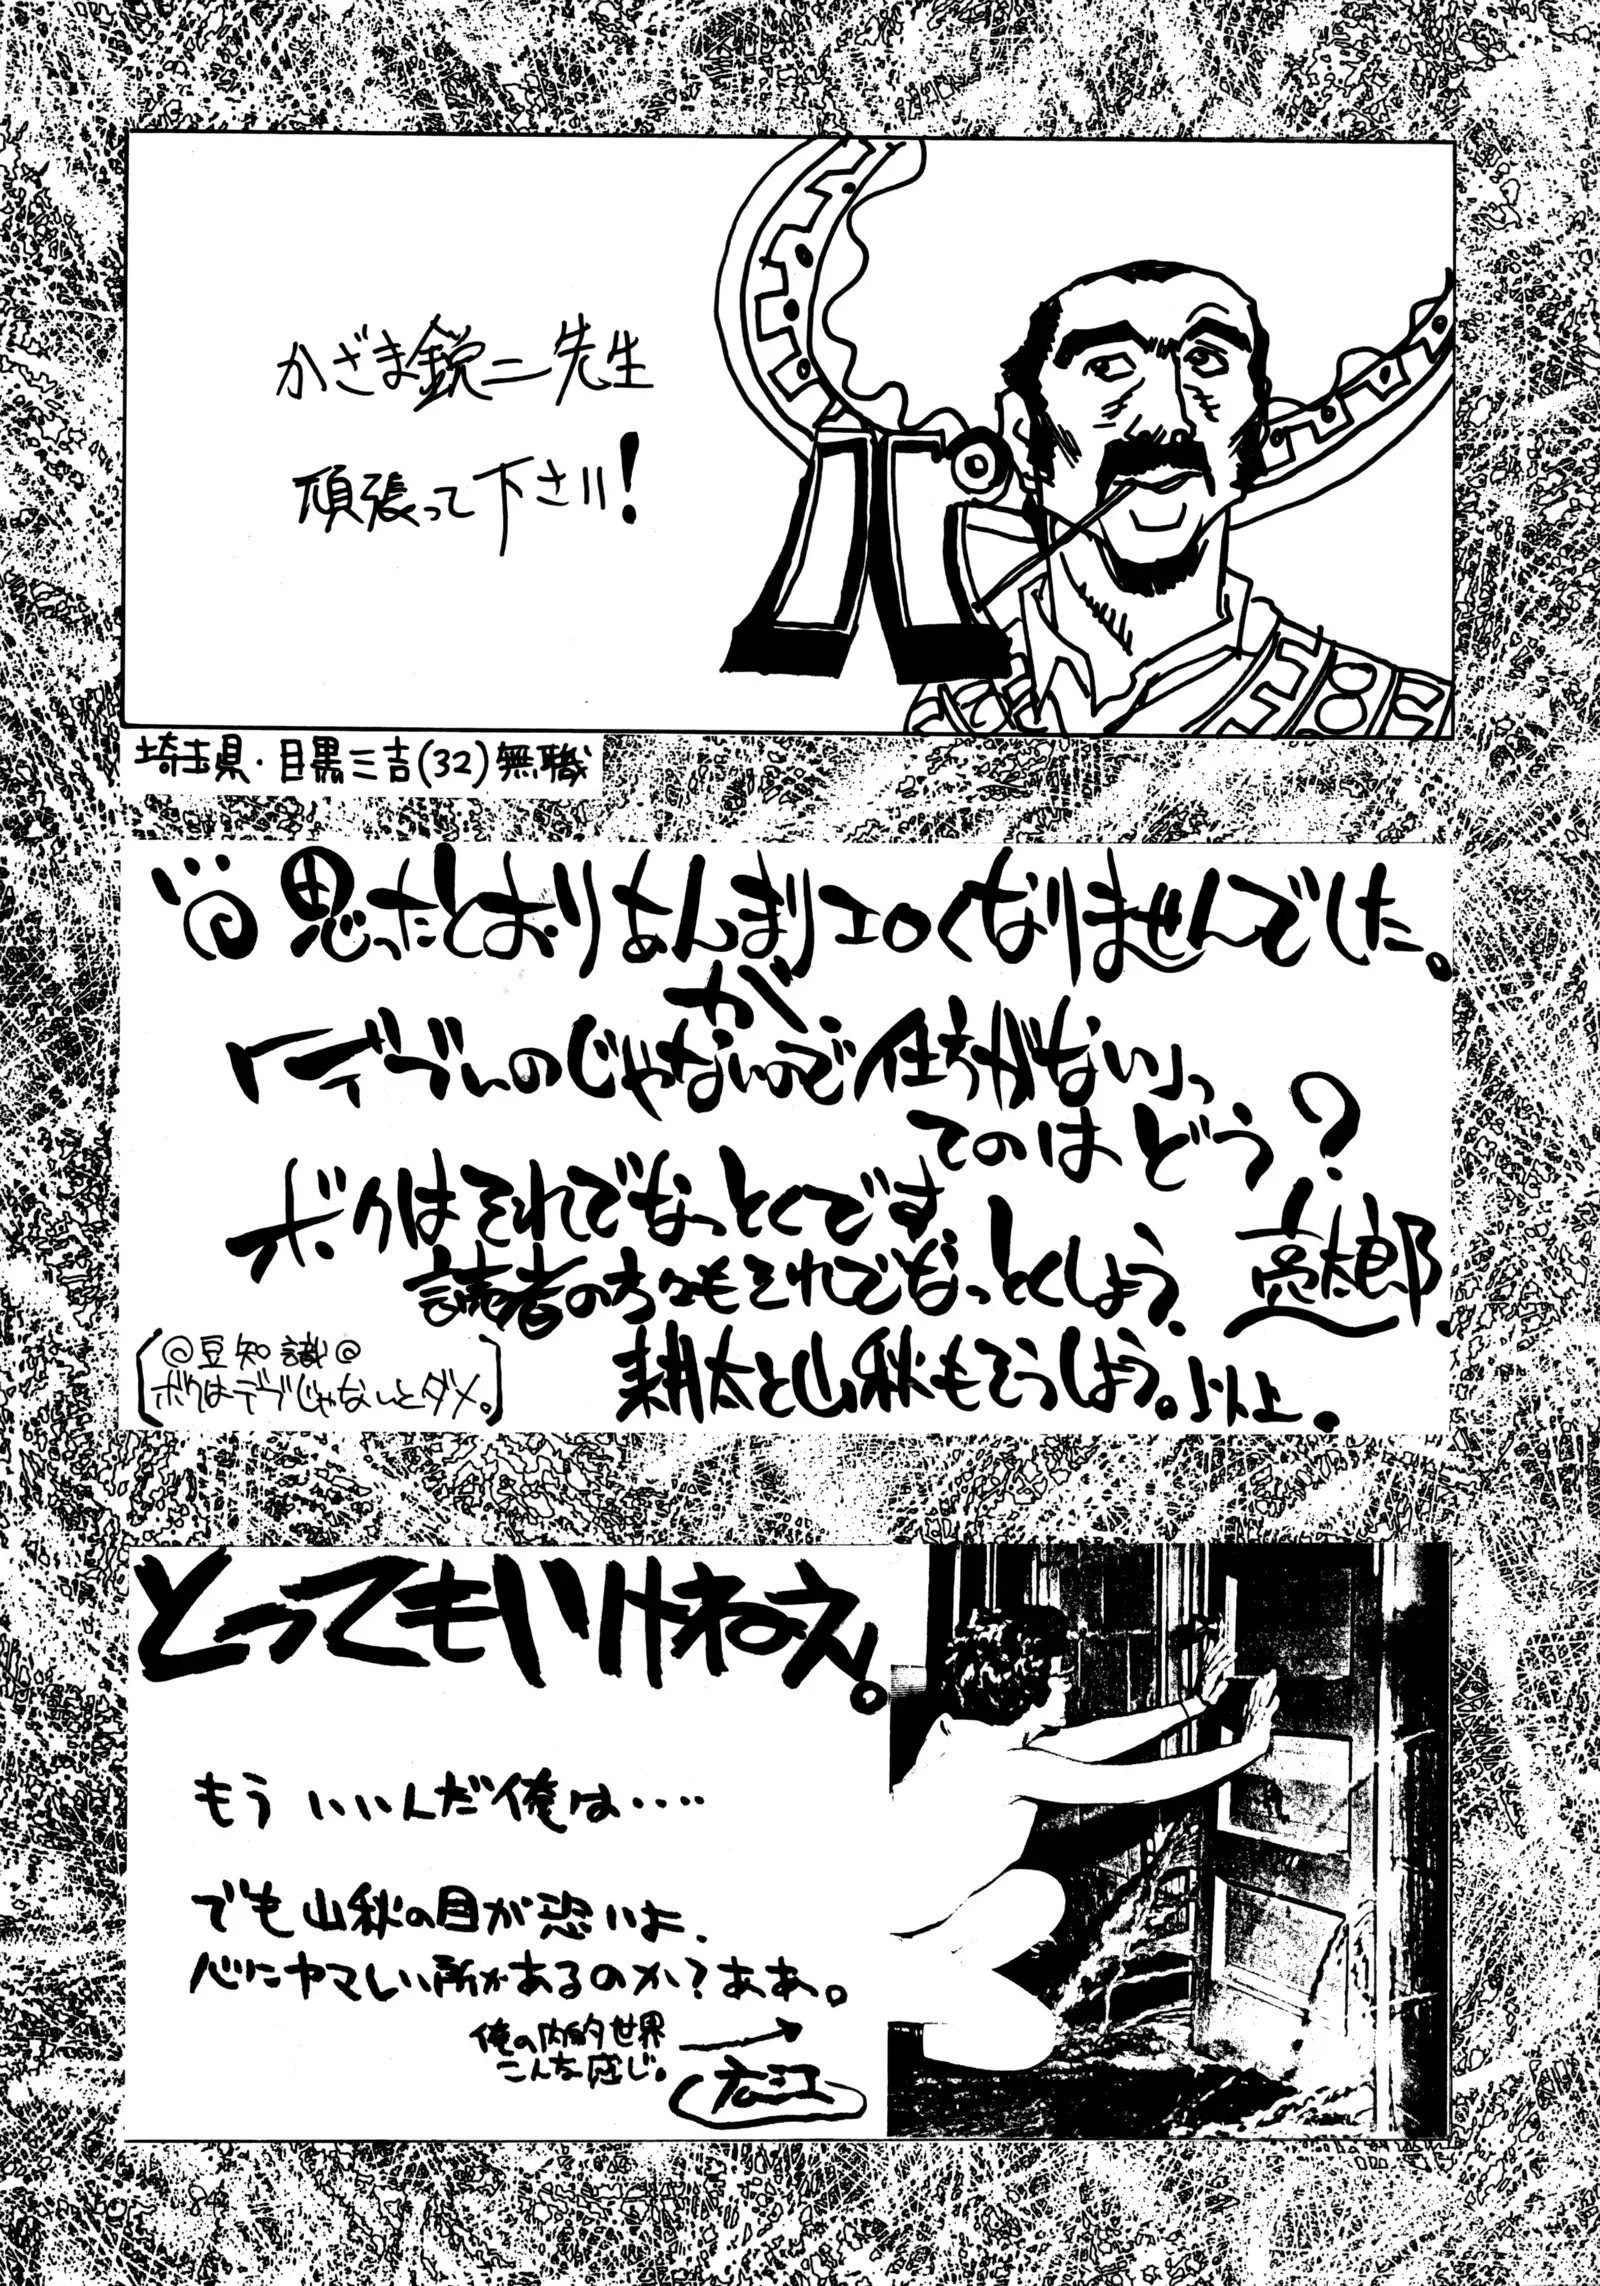 かざま鋭二先生
頑張って下さい!
埼玉県・目黒三吉(32)無職
思ったとおりあんまりエロくなりませんでした。
が
「デブいのじゃないので仕方がない」っ
てのはどう?
ボクはそれでなっとくです
読者の方々もそれでなっとくしよう。
亮太郎
耕太と山秋もそうしよう。以上。
@豆知識@
ボクはデブじゃないとダメ。
とってもいけねえ。
もういいんだ俺は‥‥
でも山秋の目が恐いよ、
心にヤマしい所があるのか?ああ。
俺の内的世界
こんな感じ。
84